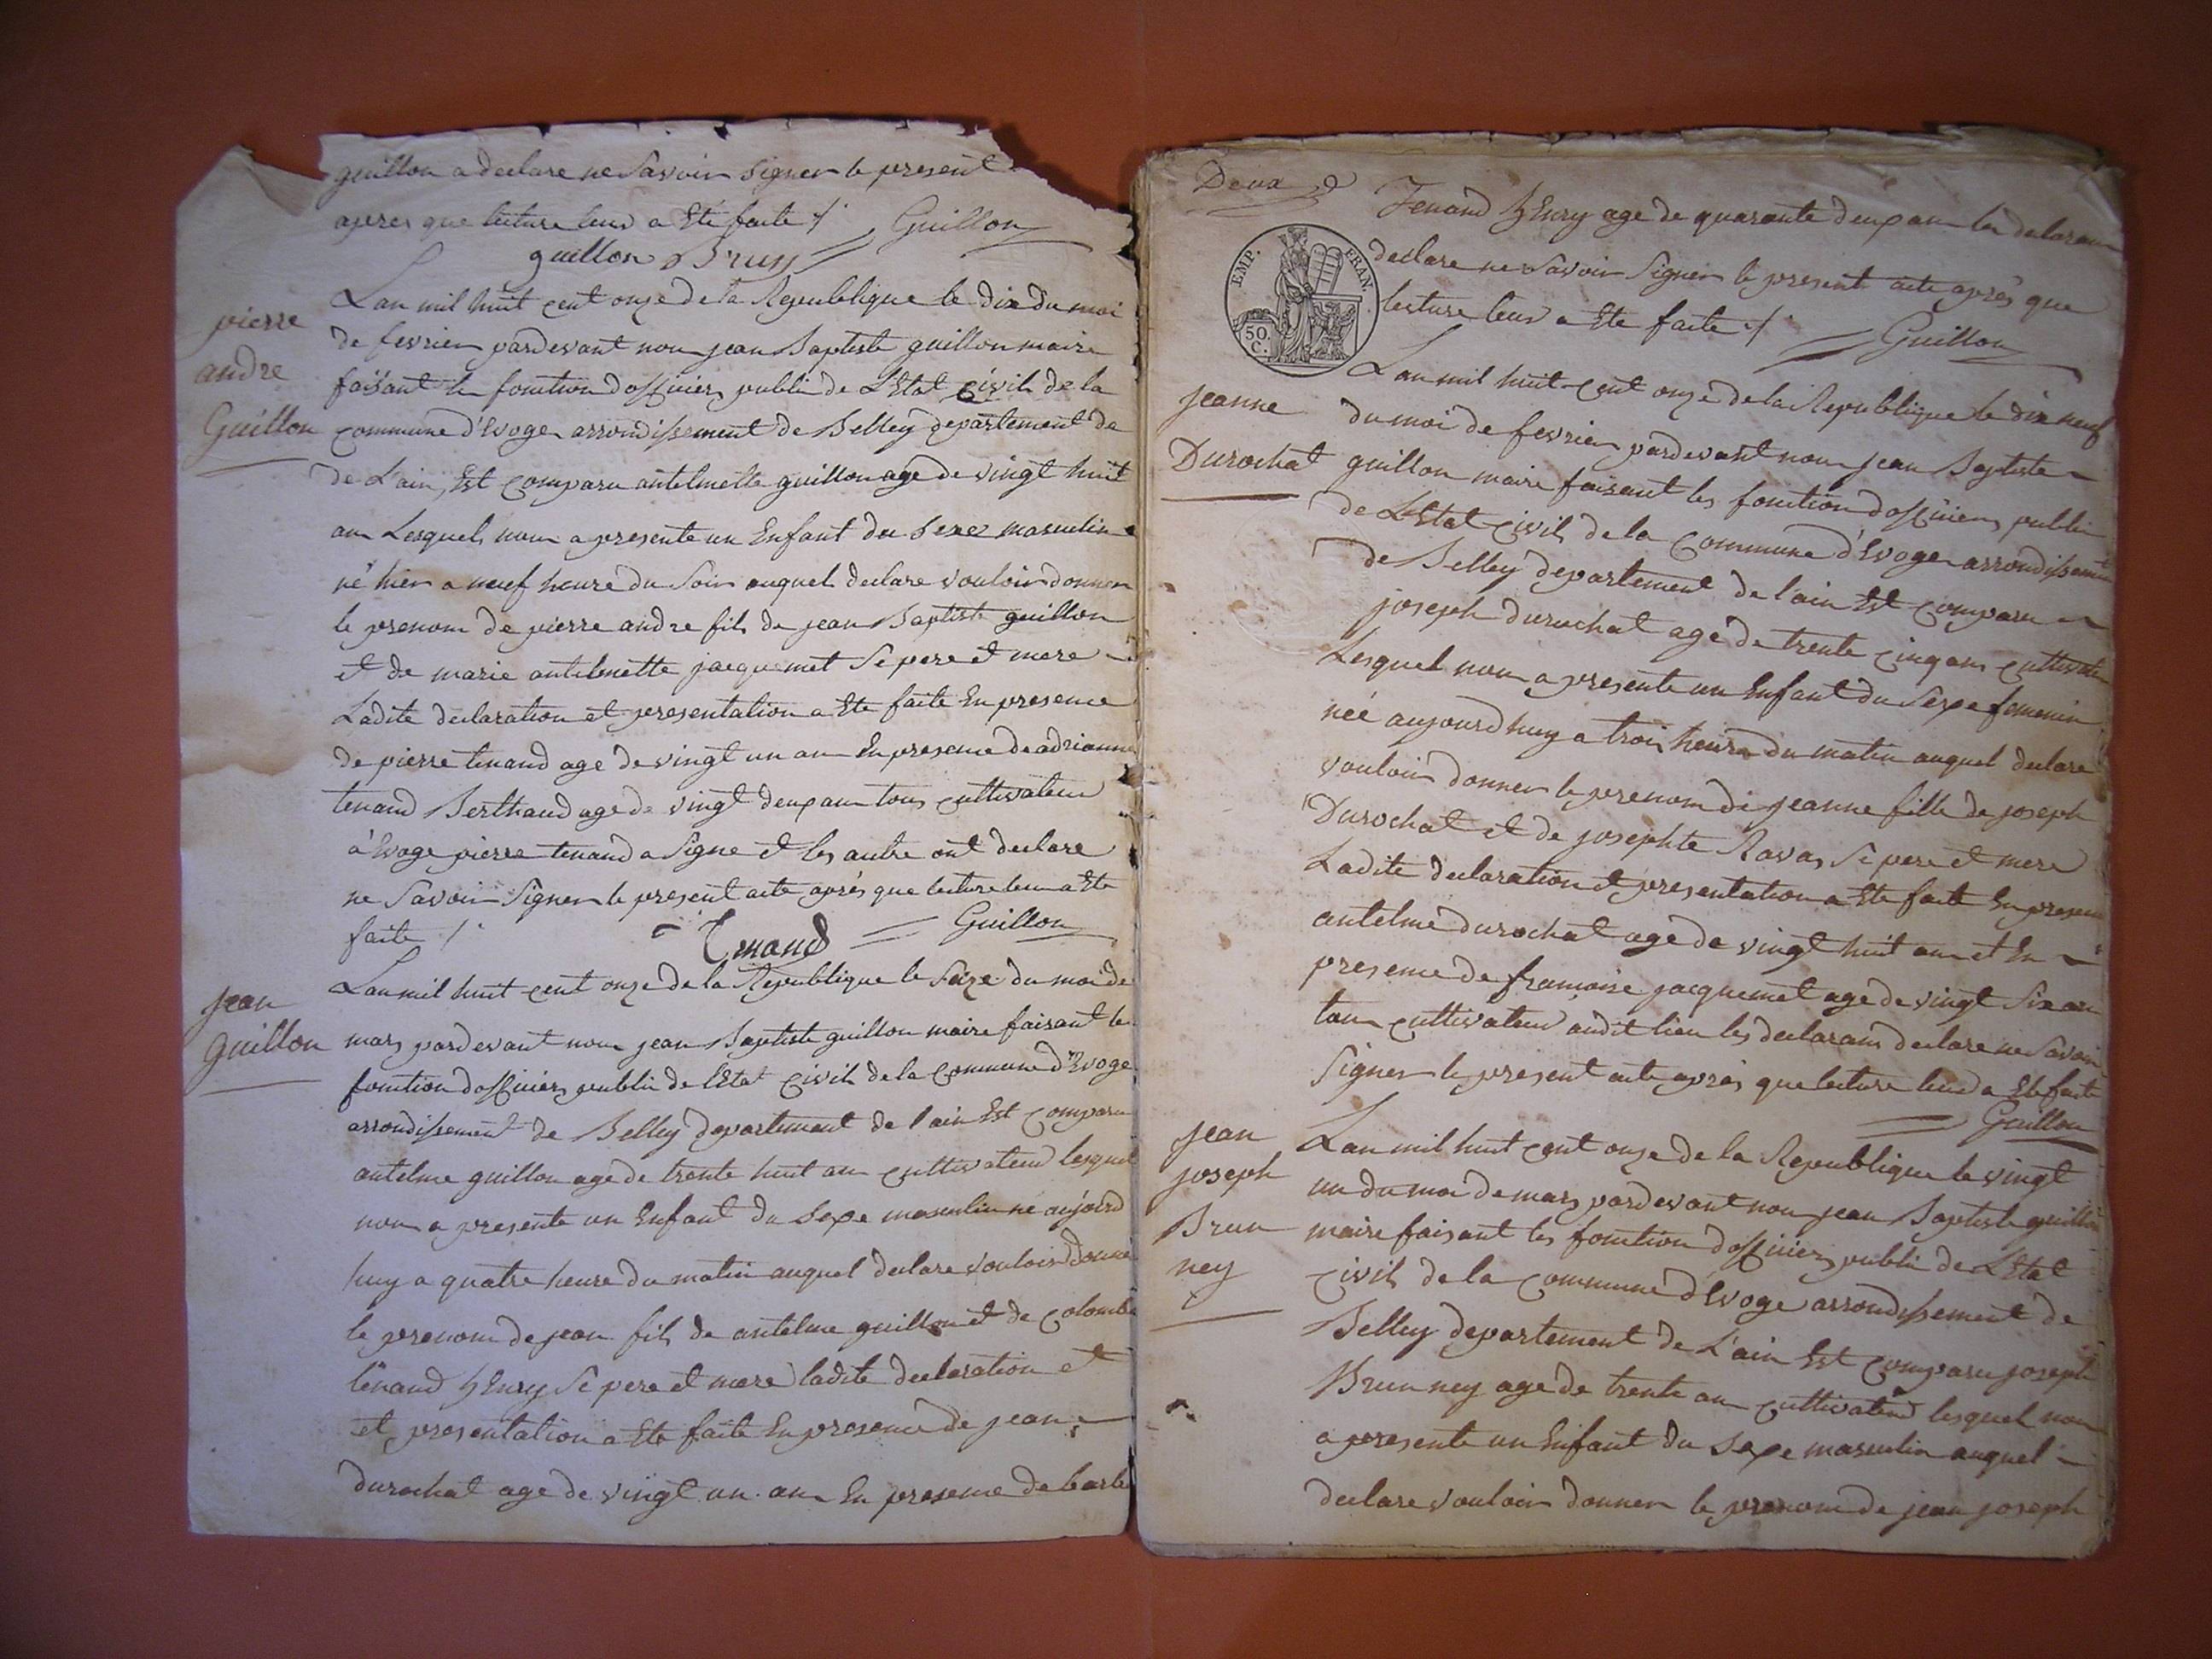 guillon a declare ne Savoir Signer le present
apres que lecture leur a Eté faite ./. Guillon
guillon Bruy
pierre
andre
Guillon
Lan mil huit cent onze de la Republique le dix du moi
de fevrier pardevant nou jean Baptiste guillon maire
faisant les fonction dofficier publi de L'Etat civil de la
commune d'Evoge arrondissement de Belley departement de
de L'ain, Est comparu antelmette guillon age de vingt huit
an Lesquel nou a presente un Enfant du Sexe masculin
né hier a neuf heure du Soir auquel declare vouloir donner
le prenom de pierre andre fils de jean Baptiste guillon
et de marie antelmette jacquemet Se pere et mere
Ladite declaration et presentation a Ete faite En presence
de pierre tenand age de vingt un an En presence de adrianne
tenand Berthaud age de vingt deux an tous cultivateur
à Evoge pierre tenand a Signe et les autre ont declare
ne Savoir Signer le present acte après que lecture leur a Ete
faite ./. Tenand Guillon
jean
guillon
Lan mil huit cent onze de la Republique le Saize du moi de
mars pardevant nou jean Baptiste guillon maire faisant les
fonction dofficier publi de l'Etat civil de la commune d'Evoge
arrondissement de Belley departement de l'ain Est comparu
antelme guillon age de trente huit an cultivateur lesquel
nou a presente un Enfant du Sexe masculin né aujourd
huy a quatre heure du matin auquel declare vouloir donner
le prenom de jean fils de antelme guillon et de colombe
tenand hEnry Se pere et mere ladite declaration et
et presentation a Ete faite En presence de jean
durochat age de vingt un an En presence de barbe
Deux
EMP. FRAN.
50 C.
Tenand hEnry age de quarante deux an les declarans
declare ne Savoir Signer le present acte après que
lecture leur a Ete faite ./. Guillon
jeanne
Durochat
Lan mil huit cent onze de la Republique le dix neuf
du moi de fevrier pardevant nou jean Baptiste
guillon maire faisant les fonction dofficier publi
de L'Etat civil de la commune d'Evoge arrondissement
de Belley departement de l'ain Est comparu
joseph durochat age de trente cinq ans cultivateur
Lesquel nou a presente un Enfant du Sexe femenin
néé aujourdhuy a troi heure du matin auquel declare
vouloir donner le prenom de jeanne fille de joseph
Durochat et de josephte Ravas Se pere et mere
Ladite declaration et presentation a Ete faite En presence
antelme durochat age de vingt huit an et En
presence de francoise jacquemet age de vingt Six an
tous cultivateur audit lieu les declarans declare ne Savoir
Signer le present acte après que lecture leur a Ete faite
Guillon
jean
joseph
Brun
ney
Lan mil huit cent onze de la Republique le vingt
un du moi de mars pardevant nou jean Baptiste guillon
maire faisant les fonction dofficier publi de L'Etat
civil de la commune d'Evoge arrondissement de
Belley departement de L'ain Est comparu joseph
Brunney age de trente an cultivateur lesquel nou
a presente un Enfant du Sexe masculin auquel
declare vouloir donner le prenom de jean joseph